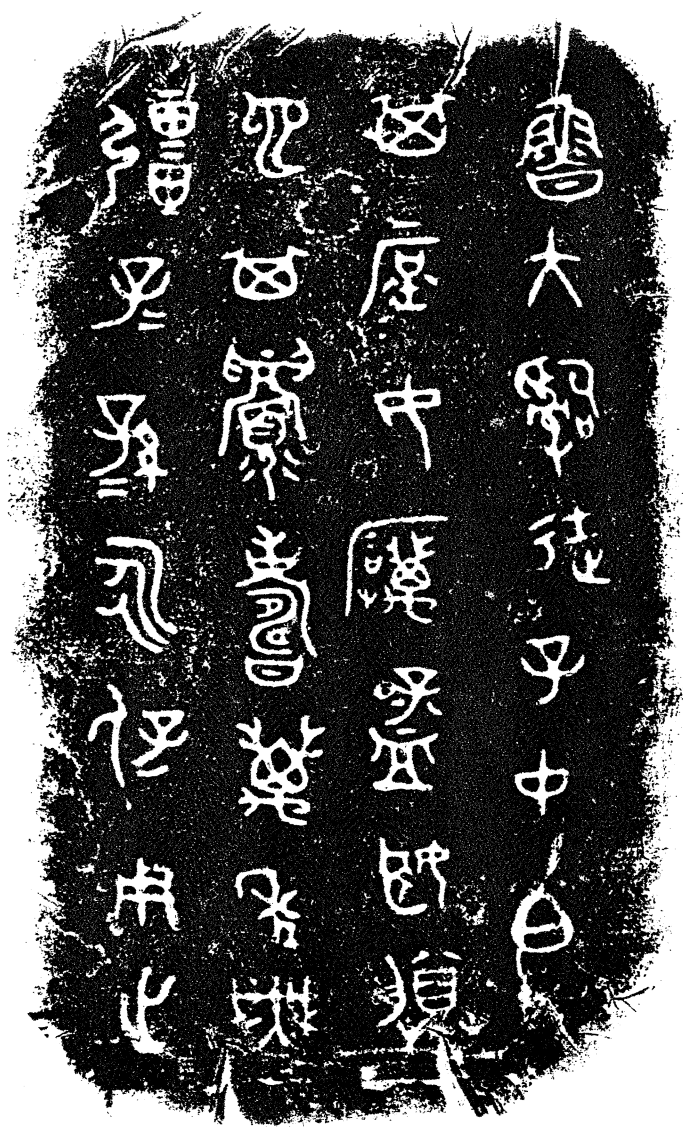 魯大𤔲徒子中白
其庶女厲孟姬賸
它其眉壽萬年無
彊子=孫=永保用之